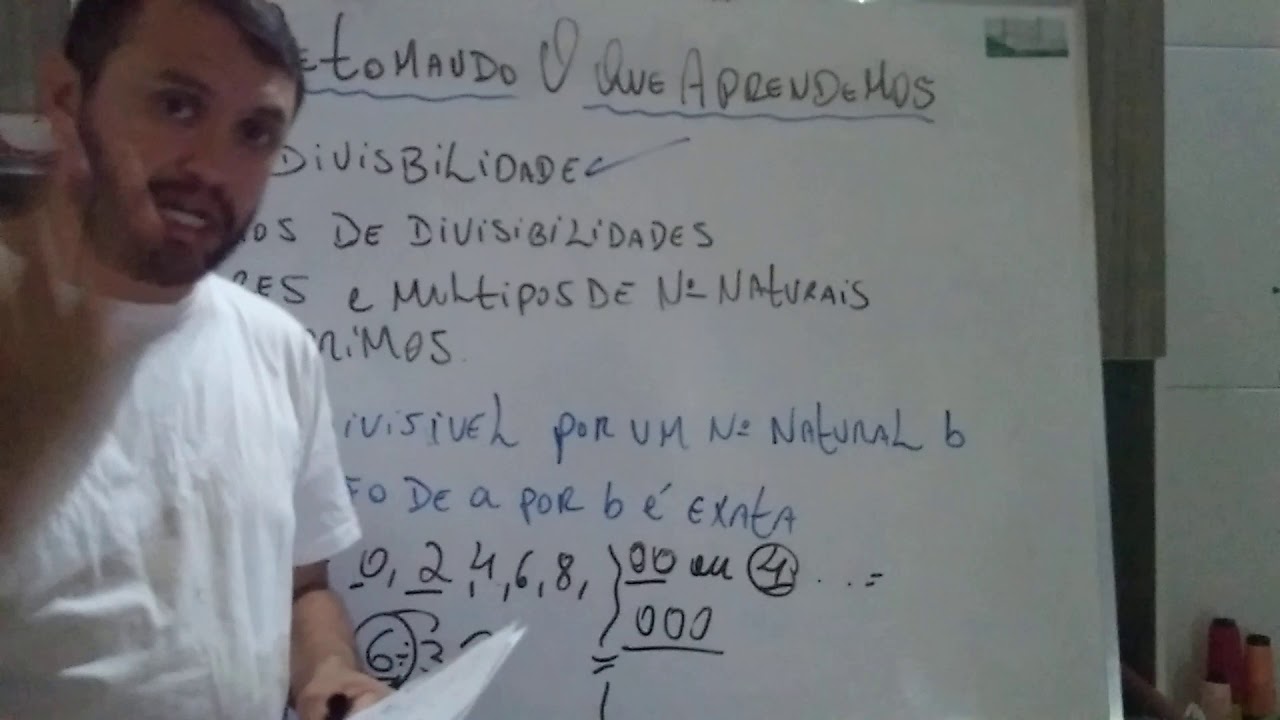 etOMANDO O QUE APRENDEMOS
DIVISBILIDADE
OS DE DIVISIBILIDADES
RES e MULtIPOS DE Nº NAtURAIS
RIMOS.
IVISIVEL POR UM Nº NAtURAL b
ÃO DE a POR b É EXAtA
0, 2, 4, 6, 8, } 00 ou 4 ...=
000
6÷3